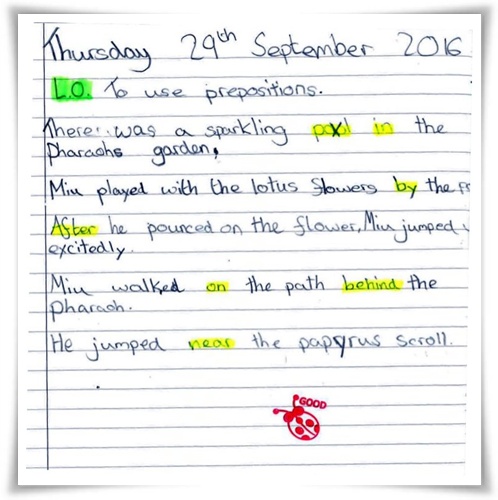 Thursday 29th September 2016
L.O. To use prepositions.
There was a sparkling pool in the
Pharaohs garden.
Miu played with the lotus flowers by the
After he pounced on the flower, Miu jumped
excitedly.
Miu walked on the path behind the
pharaoh.
He jumped near the papyrus scroll.
GOOD